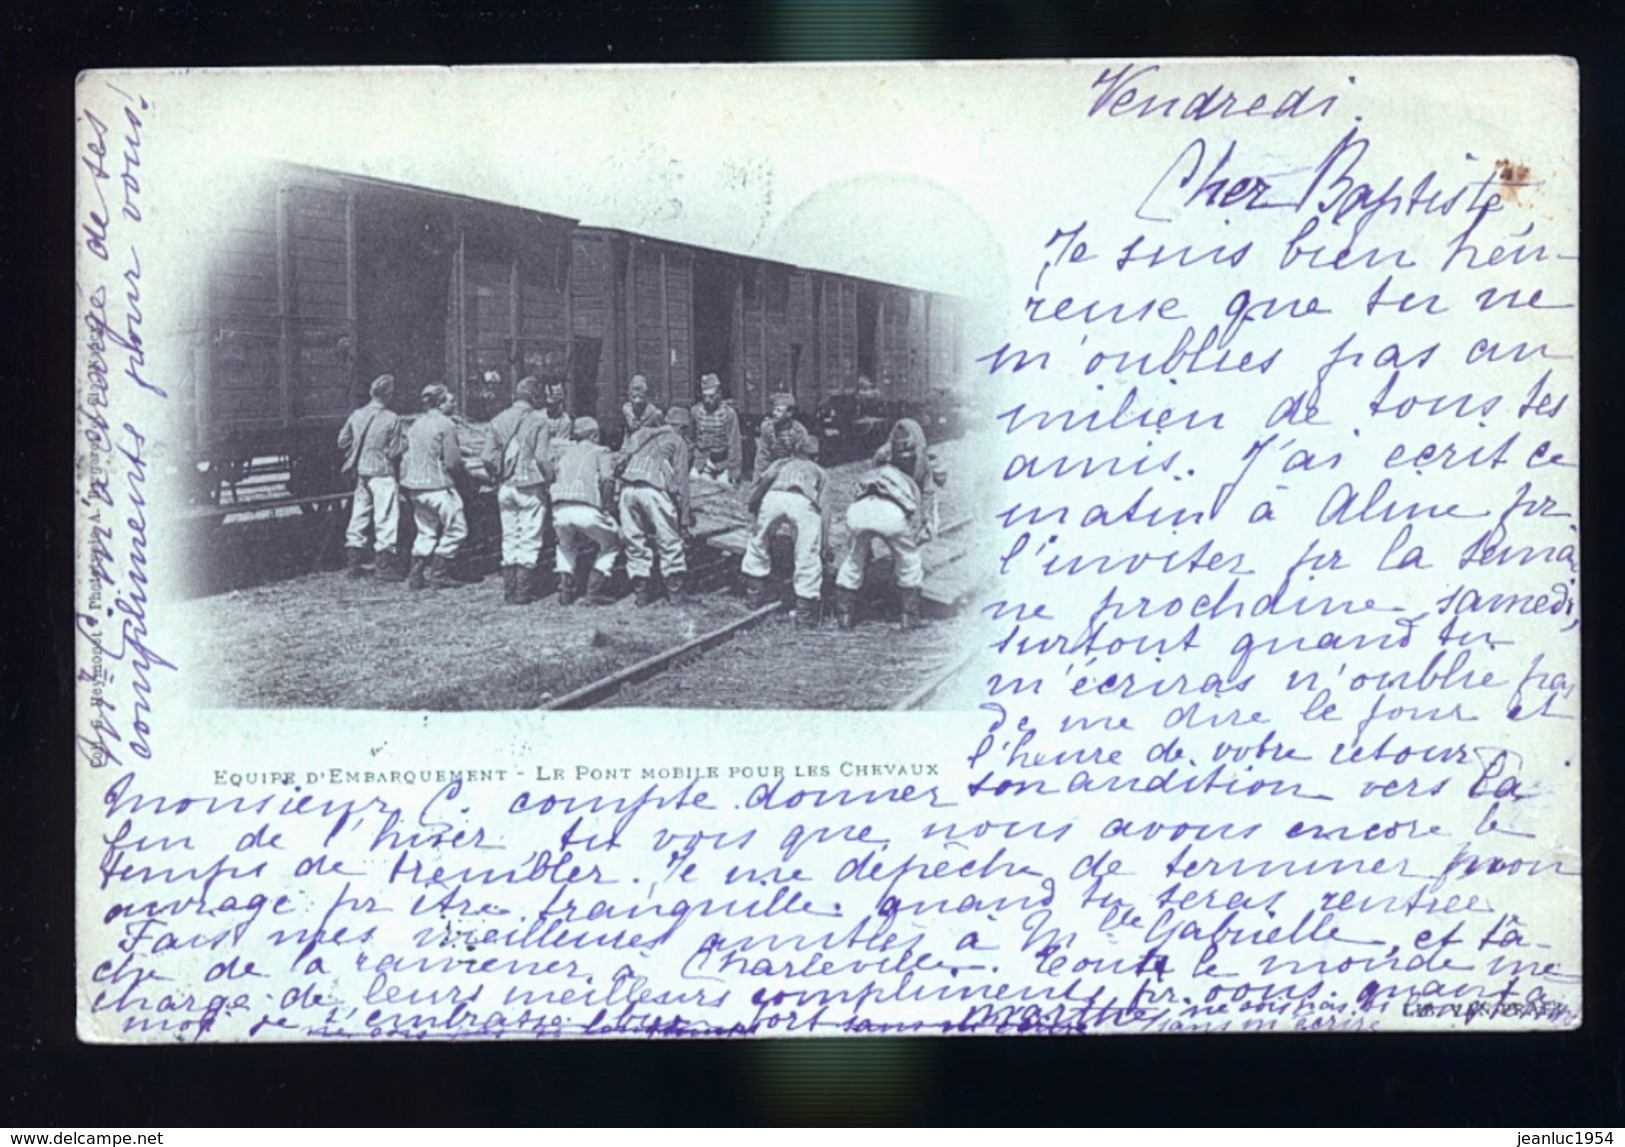 Vendredi.
Cher Baptiste
Je suis bien heu-
reuse que tu ne
m'oublies pas au
milieu de tous tes
amis. J'ai ecrit ce
matin à Aline pr.
l'inviter pr la semai
ne prochaine, samedi,
surtout quand tu
m'écriras n'oublie pas
de me dire le jour et
l'heure de votre retour
EQUIPE D'EMBARQUEMENT - LE PONT MOBILE POUR LES CHEVAUX
Monsieur C. compte donner son audition vers la
fin de l'hiver tu vois que nous avons encore le
temps de trembler. Je me dépêche de terminer mon
ouvrage pr être tranquille quand tu seras rentrée
Fais mes meilleures amitiés à Mlle Gabrielle, et tâ-
che de la ramener à Charleville. Toute le monde me
charge de leurs meilleurs compliments pr. vous quant à
moi je t'embrasse bien fort Marthe, ne sois pas si longtemps
sans m'écrire
me charge de ses
compliments pour vous!
Coll. G. Heymonet Photographie A.
delcampe.net
jeanluc1954